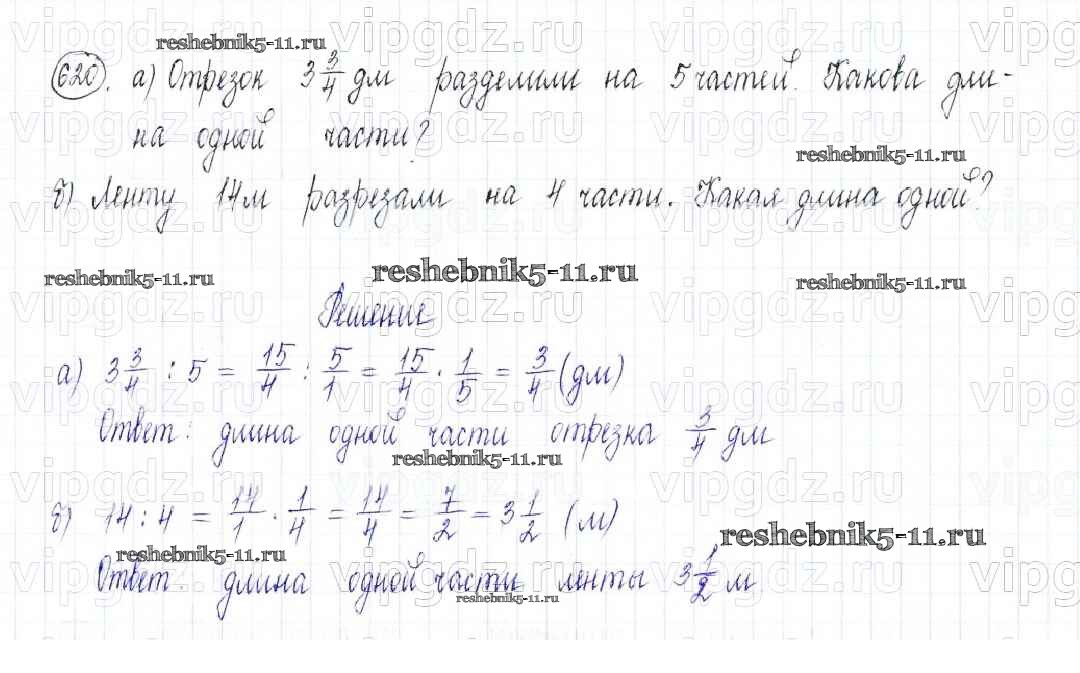 reshebnik5-11.ru
620. а) Отрезок 3 3/4 дм разделили на 5 частей. Какова дли-
на одной части?
reshebnik5-11.ru
б) Ленту 14 м разрезали на 4 части. Какая длина одной?
reshebnik5-11.ru reshebnik5-11.ru reshebnik5-11.ru
Решение
а) 3 3/4 : 5 = 15/4 : 5/1 = 15/4 · 1/5 = 3/4 (дм)
Ответ: длина одной части отрезка 3/4 дм
reshebnik5-11.ru
б) 14 : 4 = 14/1 · 1/4 = 14/4 = 7/2 = 3 1/2 (м)
reshebnik5-11.ru reshebnik5-11.ru
Ответ: длина одной части ленты 3 1/2 м
reshebnik5-11.ru
vipgdz.ru